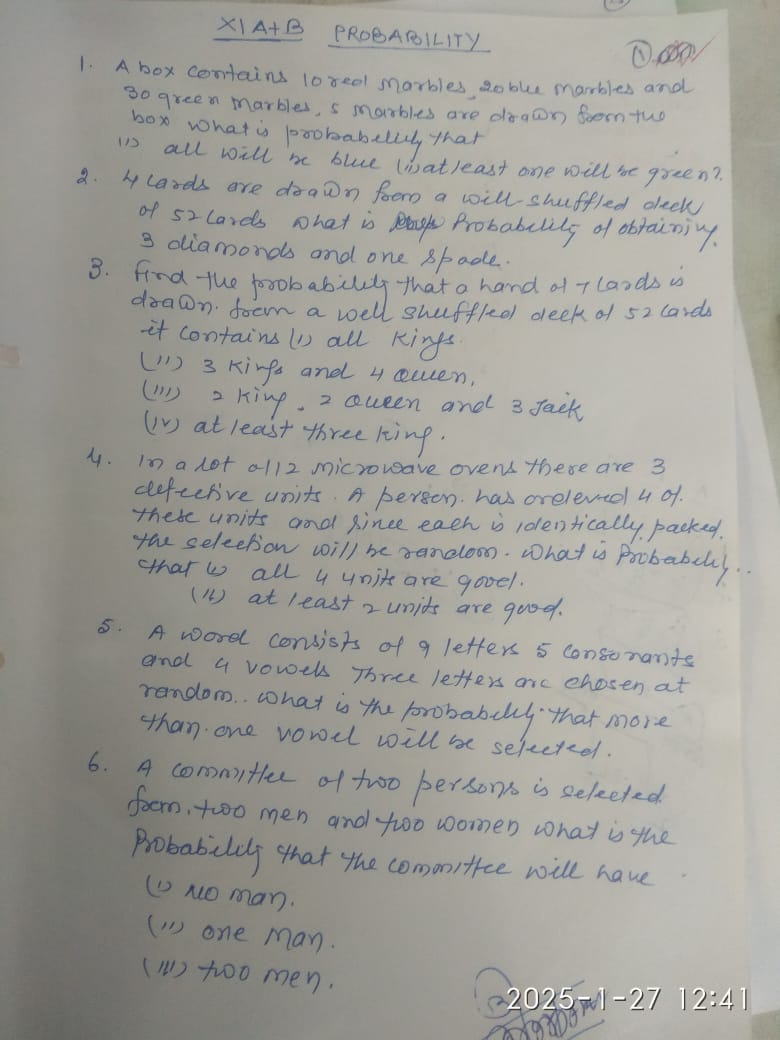 XI A+B PROBABILITY
1
1. A box contains 10 red marbles, 20 blue marbles and
30 green marbles, 5 marbles are drawn from the
box what is probability that
(i) all will be blue (ii) at least one will be green?
2. 4 cards are drawn from a will-shuffled deck
of 52 cards what is Probability of obtaining
3 diamonds and one spade.
3. find the probability that a hand of 7 cards is
drawn. from a well shuffled deck of 52 cards
it contains (i) all kings.
(ii) 3 kings and 4 Queen,
(iii) 2 king, 2 Queen and 3 Jack
(iv) at least three king.
4. In a lot of 12 microwave ovens there are 3
defective units. A person. has ordered 4 of.
these units and since each is identically packed.
the selection will be random. What is Probability..
that (i) all 4 units are good.
(ii) at least 2 units are good.
5. A word consists of 9 letters 5 consonants
and 4 vowels Three letters are chosen at
random.. what is the probability that more
than. one vowel will be selected.
6. A committee of two persons is selected
from. two men and two women what is the
Probability that the committee will have
(i) No man.
(ii) one man.
(iii) two men.
2025-1-27 12:41